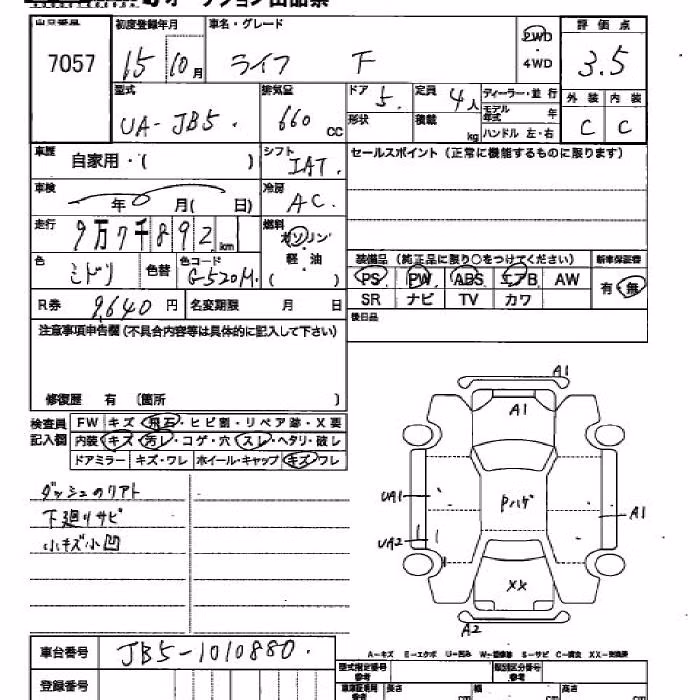 オークション出品票
出品番号 初度登録年月 車名・グレード 2WD 評価点
7057 15 10月 ライフ F 4WD 3.5
型式 排気量 ドア 5. 定員 4人 ディーラー・並行 外装 内装
UA-JB5. 660cc 形状 積載 kg モデル年式 年 ハンドル 左・右 C C
車歴 自家用・( ) シフト IAT. セールスポイント (正常に機能するものに限ります)
車検 年 月( 日) 冷房 AC.
走行 9万7千892km 燃料 ガソリン
色 ミドリ 色替 色コード G-520M. 軽・油 ( ) 装備品 (純正品に限り○をつけてください) 新車保証書
PS PW ABS エアB AW 有・無
SR ナビ TV カワ
R券 9,640円 名変期限 月 日 後日品
注意事項申告欄 (不具合内容等は具体的に記入して下さい)
修復歴 有 〔箇所 〕
検査員記入欄 FW キズ・飛石・ヒビ割・リペア跡・X要
内装 キズ・汚レ・コゲ・穴・スレ・ヘタリ・破レ
ドアミラー キズ・ワレ ホイール・キャップ キズ・ワレ
ダッシュのリアト
下廻りサビ
小キズ小凹
A1
A1
UA1 Pハゲ A1
UA2
XX
A2
A-キズ E-エクボ U-凹み W-補修跡 S-サビ C-腐食 XX-交換済
車台番号 JB5-1010880.
型式指定番号 参考 類別区分番号 参考
登録番号 車庫証明用 参考 長さ cm 幅 cm 高さ cm